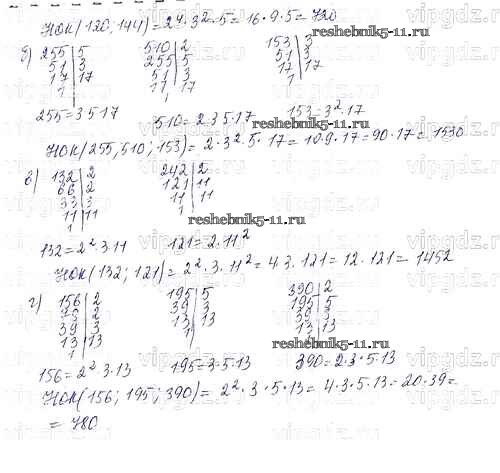 НОК(120; 144) = 2⁴·3²·5 = 16·9·5 = 720
reshebnik5-11.ru
б) 255 | 5   510 | 2   153 | 3
51 | 3   255 | 5   51 | 3
17 | 17   51 | 3   17 | 17
1   17 | 17   1
1
255 = 3·5·17   510 = 2·3·5·17   153 = 3²·17
reshebnik5-11.ru
НОК(255, 510; 153) = 2·3²·5·17 = 10·9·17 = 90·17 = 1530
в) 132 | 2   242 | 2
66 | 2   121 | 11
33 | 3   11 | 11
11 | 11   1
1
reshebnik5-11.ru
132 = 2²·3·11   121 = 2·11²
НОК(132; 121) = 2²·3·11² = 4·3·121 = 12·121 = 1452
г) 156 | 2   195 | 5   390 | 2
78 | 2   39 | 3   195 | 5
39 | 3   13 | 13   39 | 3
13 | 13   1   13 | 13
1   1
reshebnik5-11.ru
156 = 2²·3·13   195 = 3·5·13   390 = 2·3·5·13
НОК(156; 195; 390) = 2²·3·5·13 = 4·3·5·13 = 20·39 =
= 780
vipgdz.ru